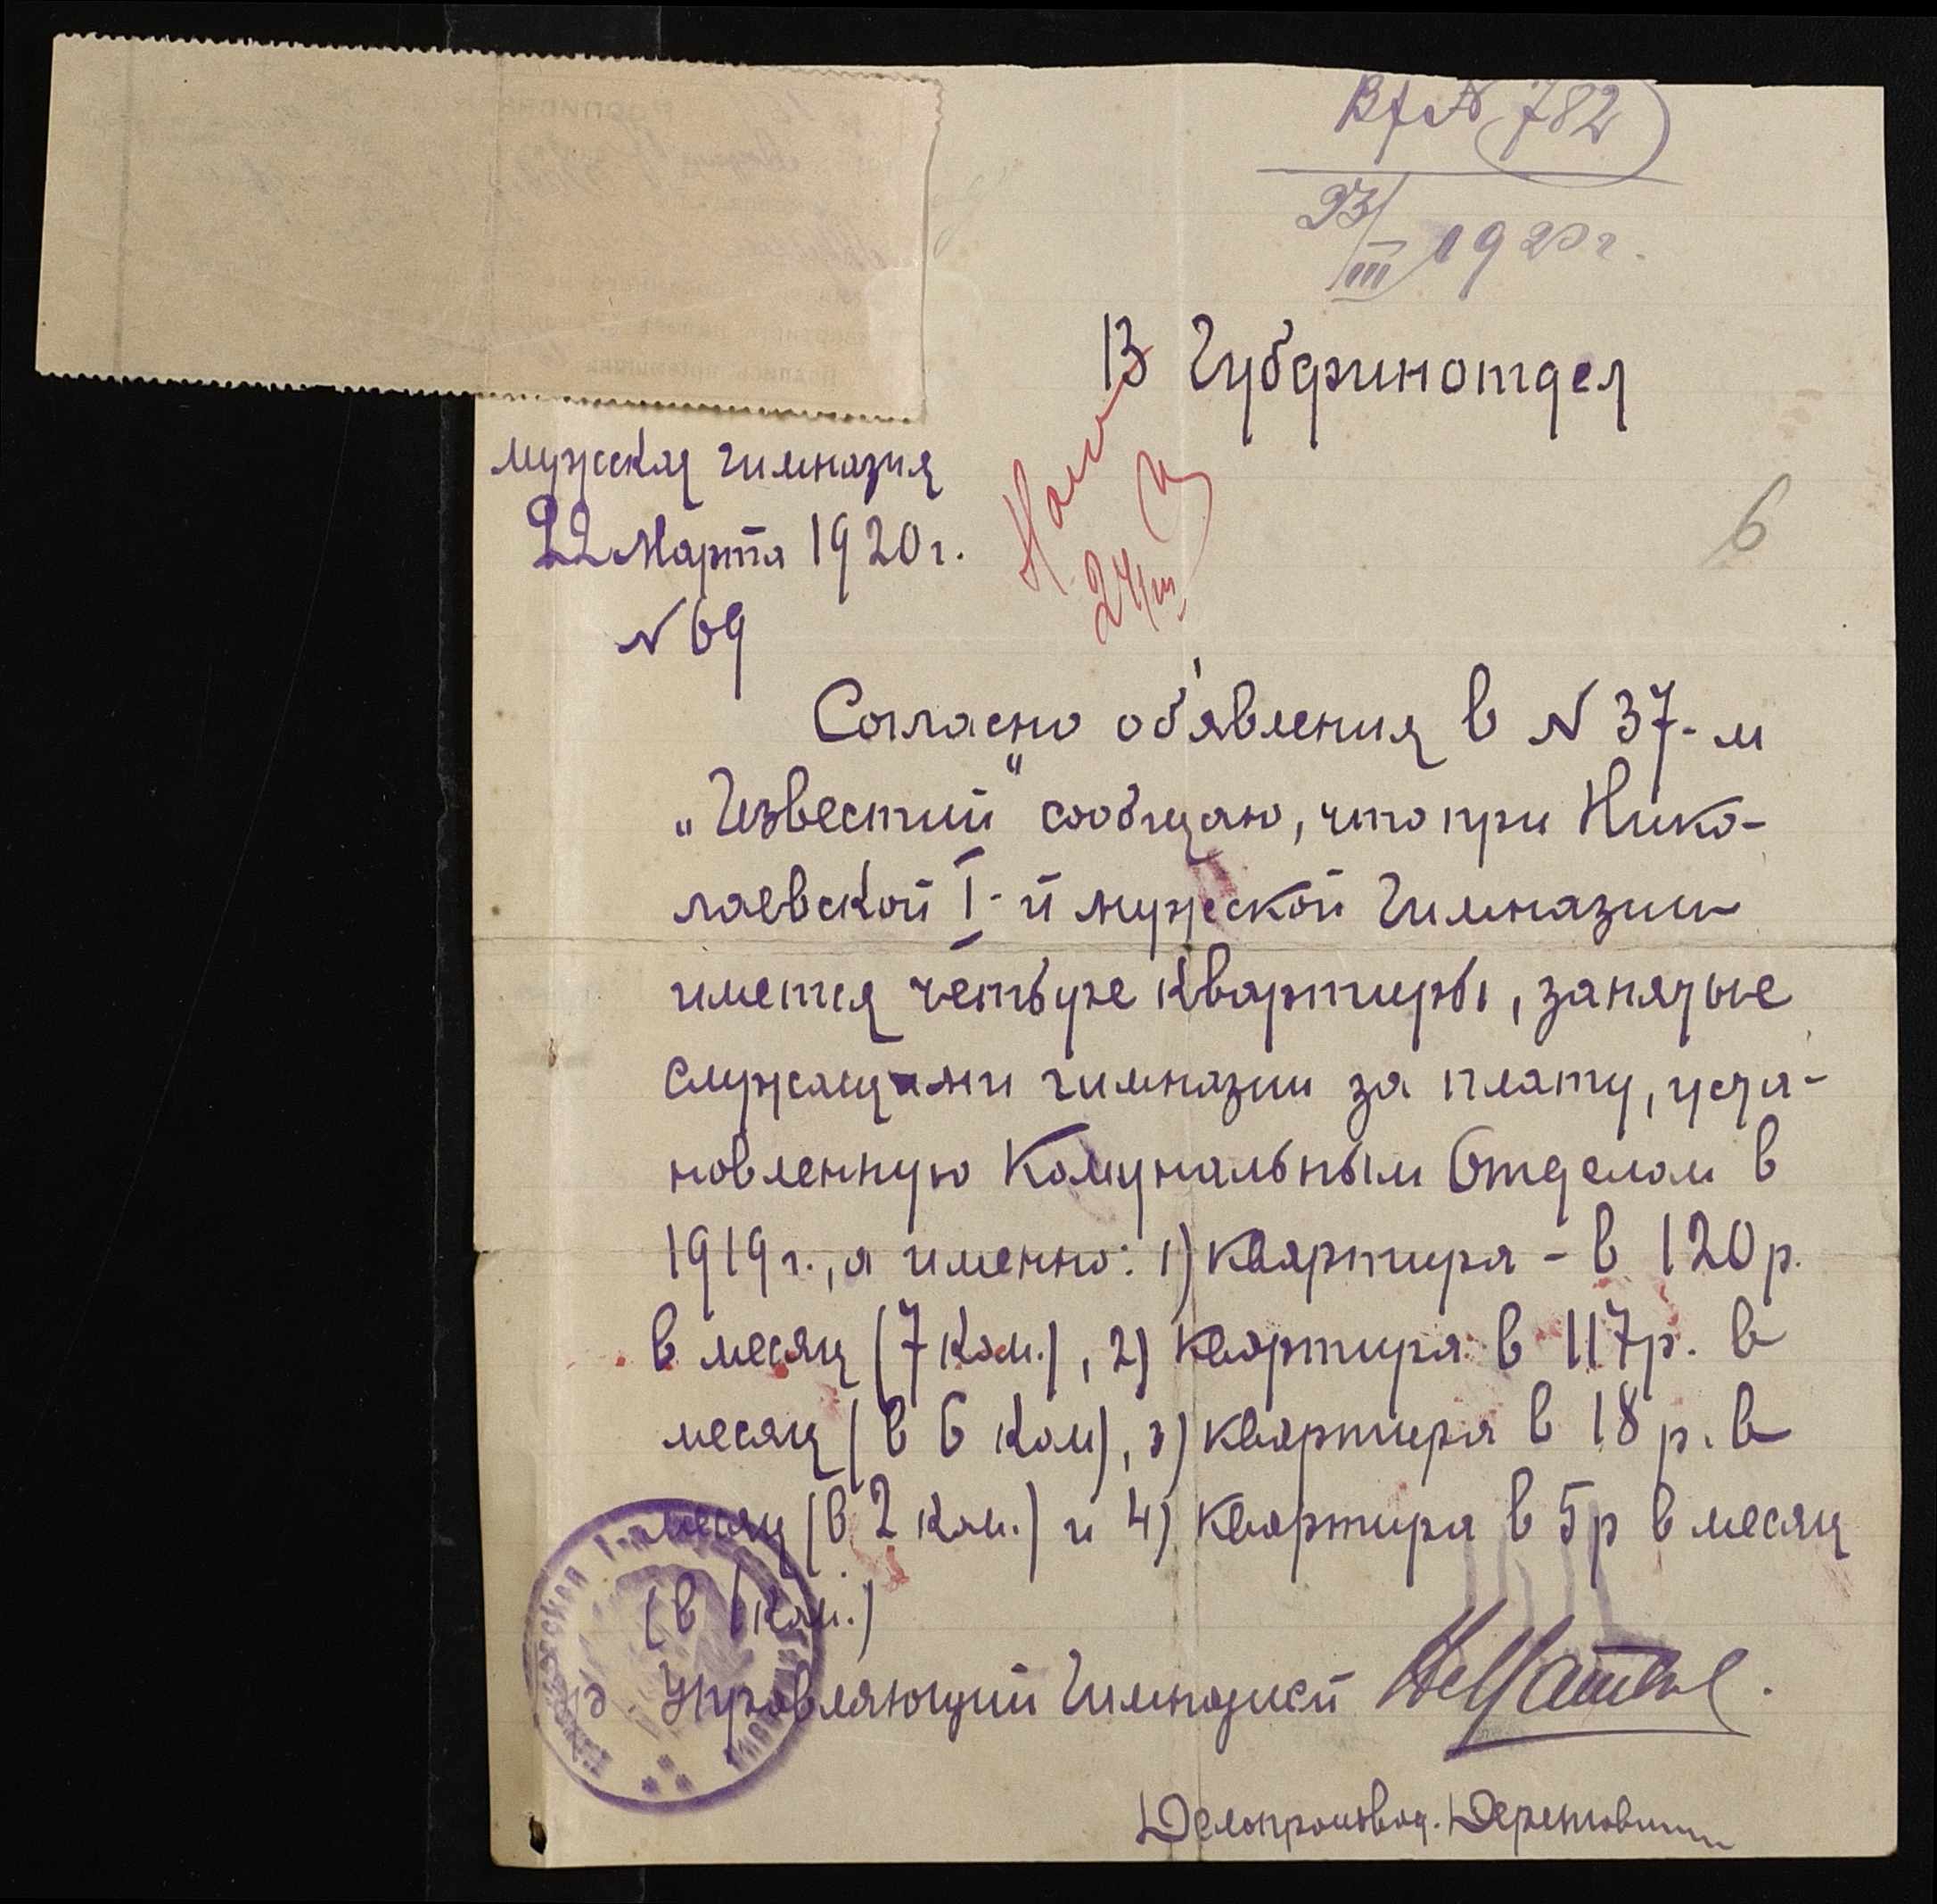 Вх № 782
23/III 1920 г.
В Губфинотдел
мужская гимназия
22 Марта 1920 г.
№ 69
24/III
6
Согласно об'явления в № 37-м
„Известий" сообщаю, что при Нико-
лаевской I-й мужской Гимназии
имется четыре квартиры, занятые
служащими гимназии за плату, уста-
новленную Комунальным Отделом в
1919 г., а именно: 1) квартира – в 120 р.
в месяц (7 ком.), 2) квартира в 117 р. в
месяц (в 6 ком), 3) квартира в 18 р. в
месяц (в 2 ком.) и 4) квартира в 5 р в месяц
(в 1 ком.)
Управляющий Гимназией
Делопроизвод.